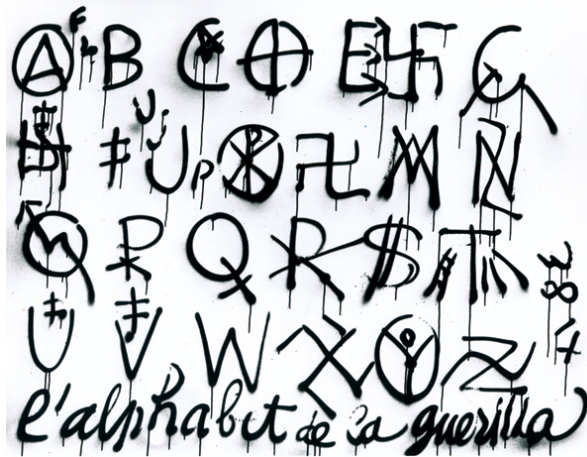 A B C D E F G
H I J K L M N
O P Q R S T
U V W X Y Z
l'alphabet de la guerilla